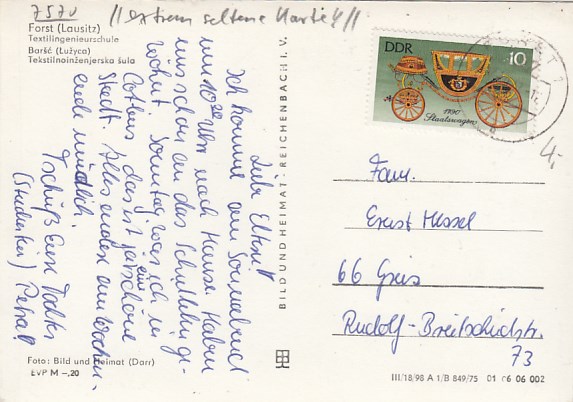 7570 //extrem seltene Karte!//
Forst (Lausitz)
Textilingenieurschule
Baršć (Łužyca)
Tekstilnoinženjerska šula
Liebe Eltern!
Ich komme am Sonnabend
um 10 Uhr nach Hause. Haben
uns schon an das Schulleben ge-
wöhnt. Sonntag war ich in
Cottbus, das ist ja eine schöne
Stadt. Alles andere am Wochen-
ende mündlich.
Tschüß Eure Tochter
(Studentin) Petra!
Foto: Bild und Heimat (Darr)
EVP M –,20
BILD UND HEIMAT REICHENBACH I. V.
DDR
10
1790
Staatswagen
4,-
Fam.
Ernst Hessel
66 Greiz
Rudolf-Breitscheidstr.
73
III/18/98 A 1/B 849/75 01 06 06 002